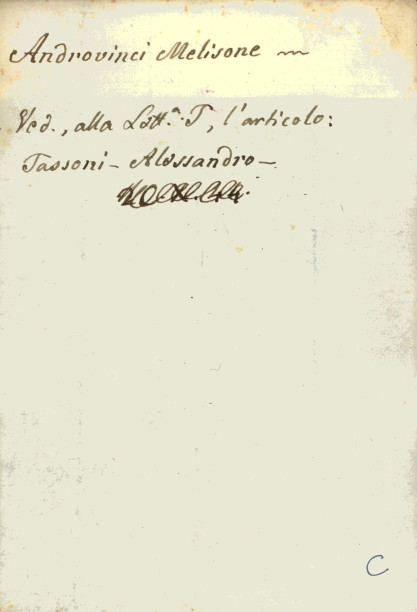 Androvinci Melisone ~
Ved., alla Lett.ª T, l'articolo:
Tassoni - Alessandro -
C